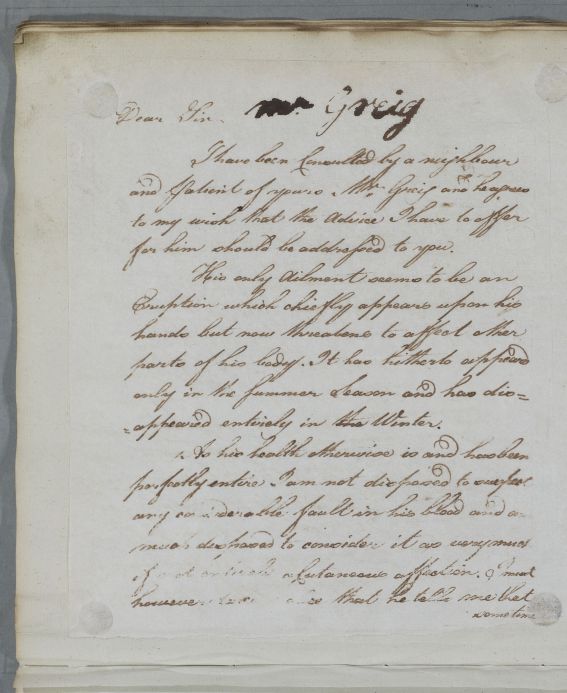 Dear Sir. Mr. Greig
I have been Consulted by a neighbour
and Patient of yours, Mr. Greig and he agrees
to my wish that the Advice I have to offer
for him should be addressed to you.
His only Ailment seems to be an
Eruption which chiefly appears upon his
hands but now threatens to affect other
parts of his body. It has hitherto appeared
only in the Summer Season and has dis=
=appeared entirely in the Winter.
As his health otherwise is and has been
perfectly entire. I am not disposed to suspect
any considerable fault in his blood and am
much disposed to consider it as very much
if not entirely a Cutaneous affection. I must
however that he tells me that
sometime